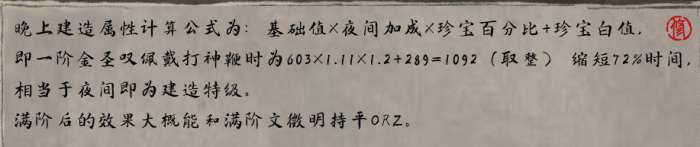 晚上建造属性计算公式为：基础值×夜间加成×珍宝百分比+珍宝白值，
即一阶金圣叹佩戴打神鞭时为603×1.11×1.2+289=1092（取整） 缩短72%时间，
相当于夜间即为建造特级。
满阶后的效果大概能和满阶文徵明持平ORZ。